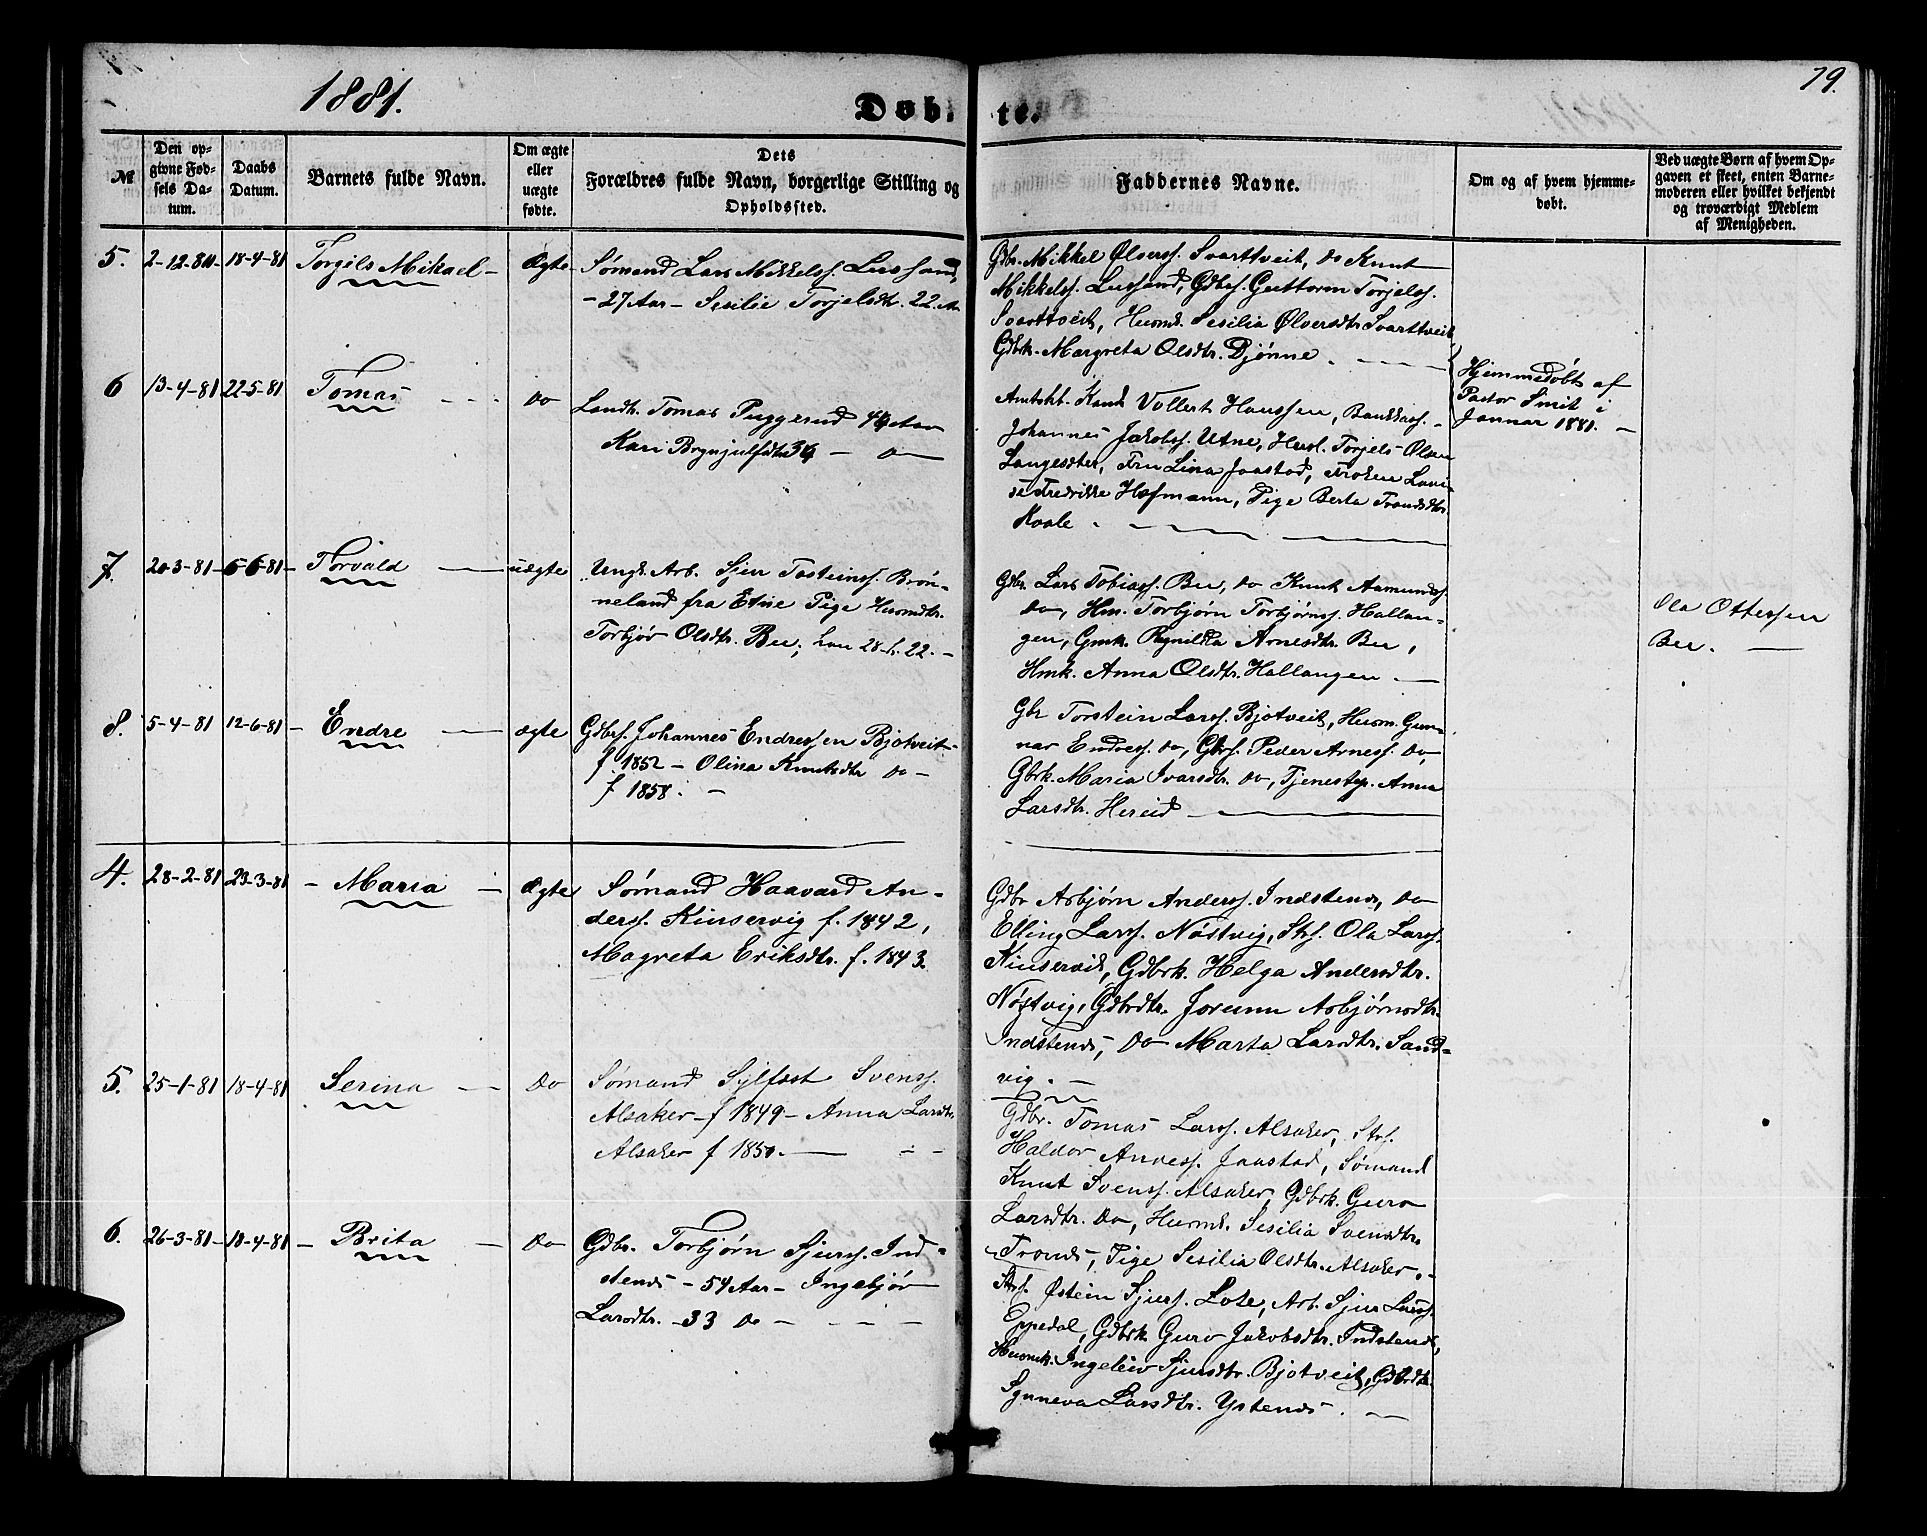 1881.
Døbte.
79.
№
Den op-
givne Fød-
sels Da-
tum.
Daabs
Datum.
Barnets fulde Navn.
Om ægte
eller
uægte
fødte.
Dets
Forældres fulde Navn, borgerlige Stilling og
Opholdssted.
Faddernes Navne.
Om og af hvem hjemme-
døbt.
Ved uægte Børn af hvem Op-
gaven et skeet, enten Barne-
moderen eller hvilket bekjendt
og troværdigt Medlem
af Menigheden.
5. 2-12-80 18-4-81 Torgils Mikael - Ægte
Sømand Lars Mikkelss. Lussand,
- 27 Aar - Sesilie Torjelsdtr. 22 Aa
Gbr. Mikkel Ølverss. Svarttveit, do Knut
Mikkelss. Lussand, Gdbrs. Guttorm Torjelss.
Svarttveit, Husmk. Sesilia Ølversdtr. Svarttveit
Gdbrk. Margreta Olsdtr. Djønne .
Hjemmedøbt af
Pastor Smit i
Januar 1881. -
6 13-4-81 22-5-81 Tomas - do
Landh. Tomas Puggerud 44 Aar
Kari Brynjulfsdtr. 34 - do
Amtskt. Knud Vollert Hanssen, Bankkass.
Johannes Jakobss. Utne, Hersl. Torjels Olsen
Langesæter, Fru Lina Jaastad, Frøken Lovi-
se Fredrikke Hofmann, Pige Berta Trondsdtr.
Kvale .
7. 20-3-81 - 5-6-81 - Torvald - uægte
Ungk. Arb. Sjur Tosteinss. Brøn-
neland fra Etne Pige Husmdtr.
Torbjør Olsdtr. Bu; han 28 h. 22. -
Gbr. Lars Tobiass. Bu, do Knut Aamundss.
do, Hm. Torbjørn Torbjørnss. Hallan-
gen, Gmk. Ragnilda Arnesdtr. Bu,
Hmk. Anna Olsdtr. Hallangen . -
Ola Ottersen
Bu. -
8. 5-4-81 12-6-81 - Endre - ægte
Gdbrs. Johannes Endressen Bjotveit -
f 1852 - Olina Knutsdtr do -
f 1858. -
Gbr Torstein Larss. Bjotveit, Husm. Gun-
nar Endress. do, Gbrs. Peder Arness. do,
Gbrk. Maria Ivarsdtr. do, Tjenestep. Anna
Larsdtr. Hereid -
4. 28-2-81 23-3-81 - Maria - Ægte
Sømand Haavard An-
derss. Kinservig f. 1842,
Magreta Eriksdtr. f. 1843.
Gdbr Asbjørn Anderss. Indstenes, do
Elling Larss. Nøstvig, Strs. Ola Larss.
Kinservik, Gdbrk. Helga Andersdtr.
Nøstvig, Gdbrdtr. Jorunn Asbjørnsdtr.
Indstenes, do Marta Larsdtr. Sand-
vig. -
5. 25-1-81 18-4-81 Serina - do
Sømand Sylfest Svenss.
Alsaker - f 1849 - Anna Larsdtr.
Alsaker f 1850. -
Gdbr. Tomas Larss. Alsaker, Strs.
Haldor Aness. Jaastad, Sømand
Knut Svenss. Alsaker, Gdbrk. Guro
Larsdtr. do, Husmk. Sesilia Svensdtr.
Trones, Pige Sesilia Olsdtr. Alsaker. -
6. 26-3-81 - 18-4-81 - Brita - do
Gdbr. Torbjørn Sjurss. Ind-
stenes - 54 Aar - Ingebjør
Larsdtr. - 33 do -
Strs. Østein Sjurss. Lote, Arb. Sjur Larss.
Eppedal, Gdbrk. Guro Jakobsdtr. Indstenes,
Husmk. Ingeleiv Sjursdtr. Bjotveit, Gdbrdtr.
Synneva Larsdtr. Ystenes . -